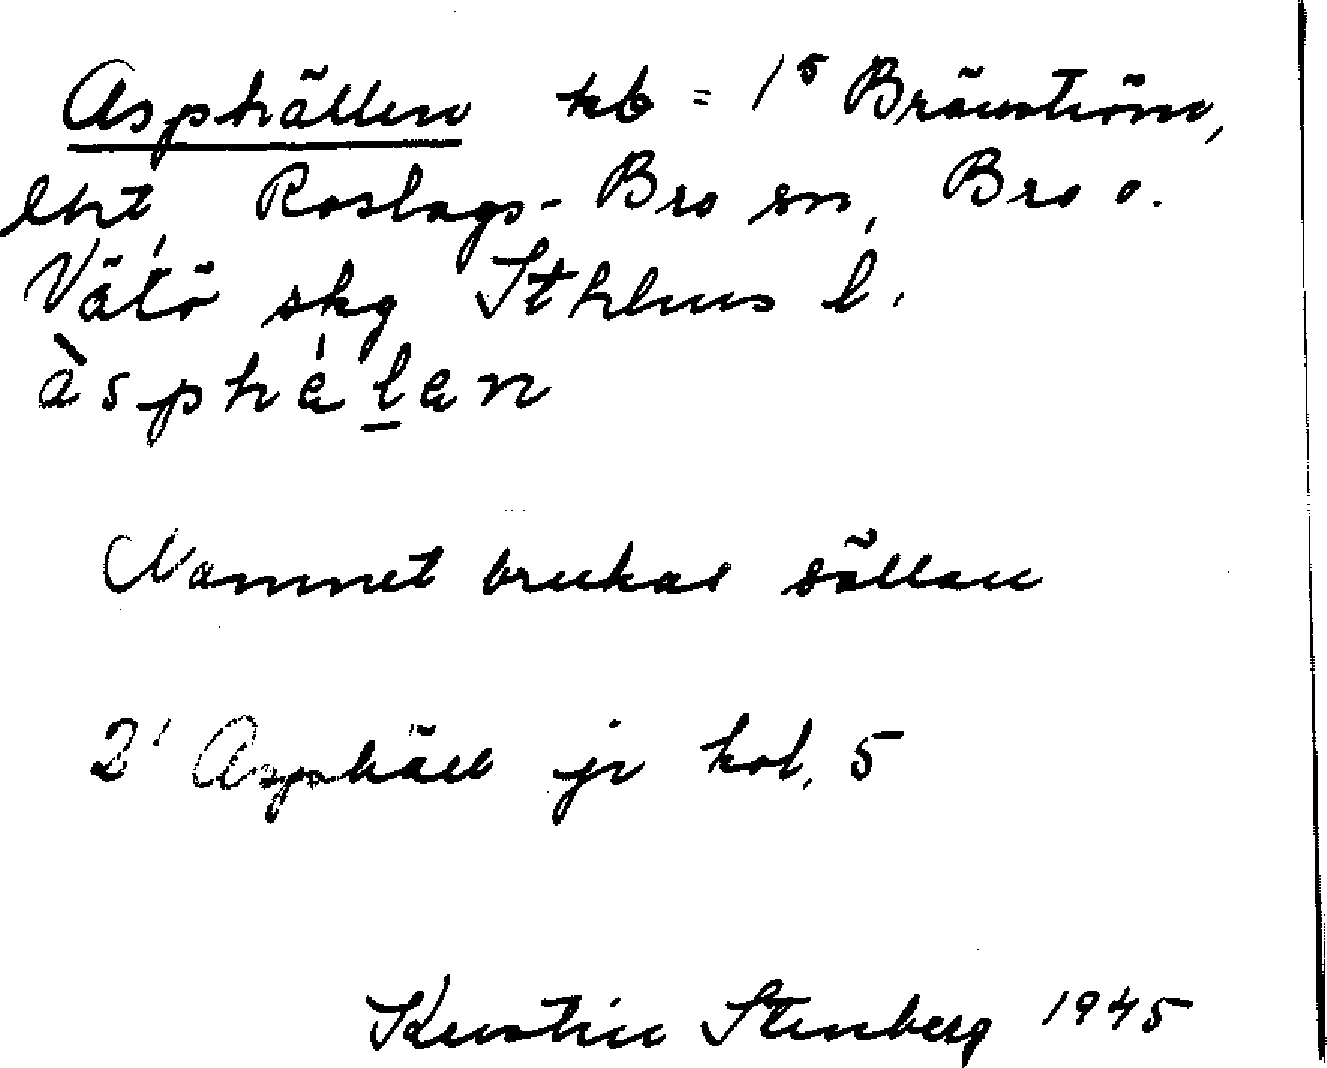 Asphällen hb = 1⁵ Bränström,
lht, Roslags-Bro sn, Bro o.
Vätö skg Sthlms l.
àsphälan
Namnet brukas sällan
2' Asphäll jr kol. 5
Kerstin Stenberg 1945